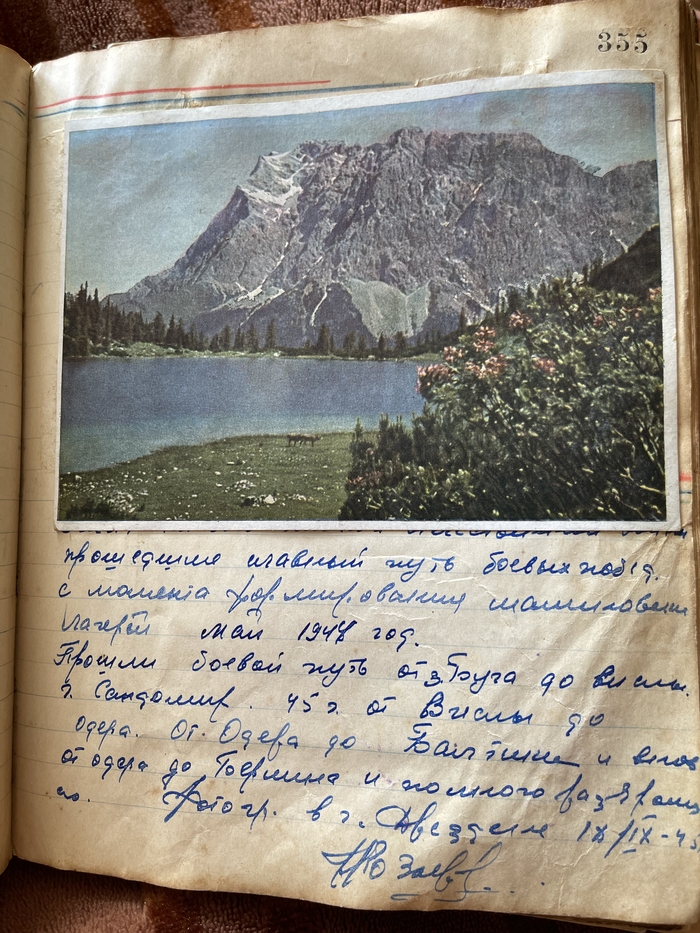 355
прошедшие славный путь боевых побед.
с момента формирования
лагерей май 194 год.
Прошли боевой путь от з. Буга до вислы.
г. Сандомир. 45 г. от Вислы до
одера. От Одера до Балтики и вновь
от одера до Берлина и полного
го. Фотогр. в г. Дрездене IX/IX-45